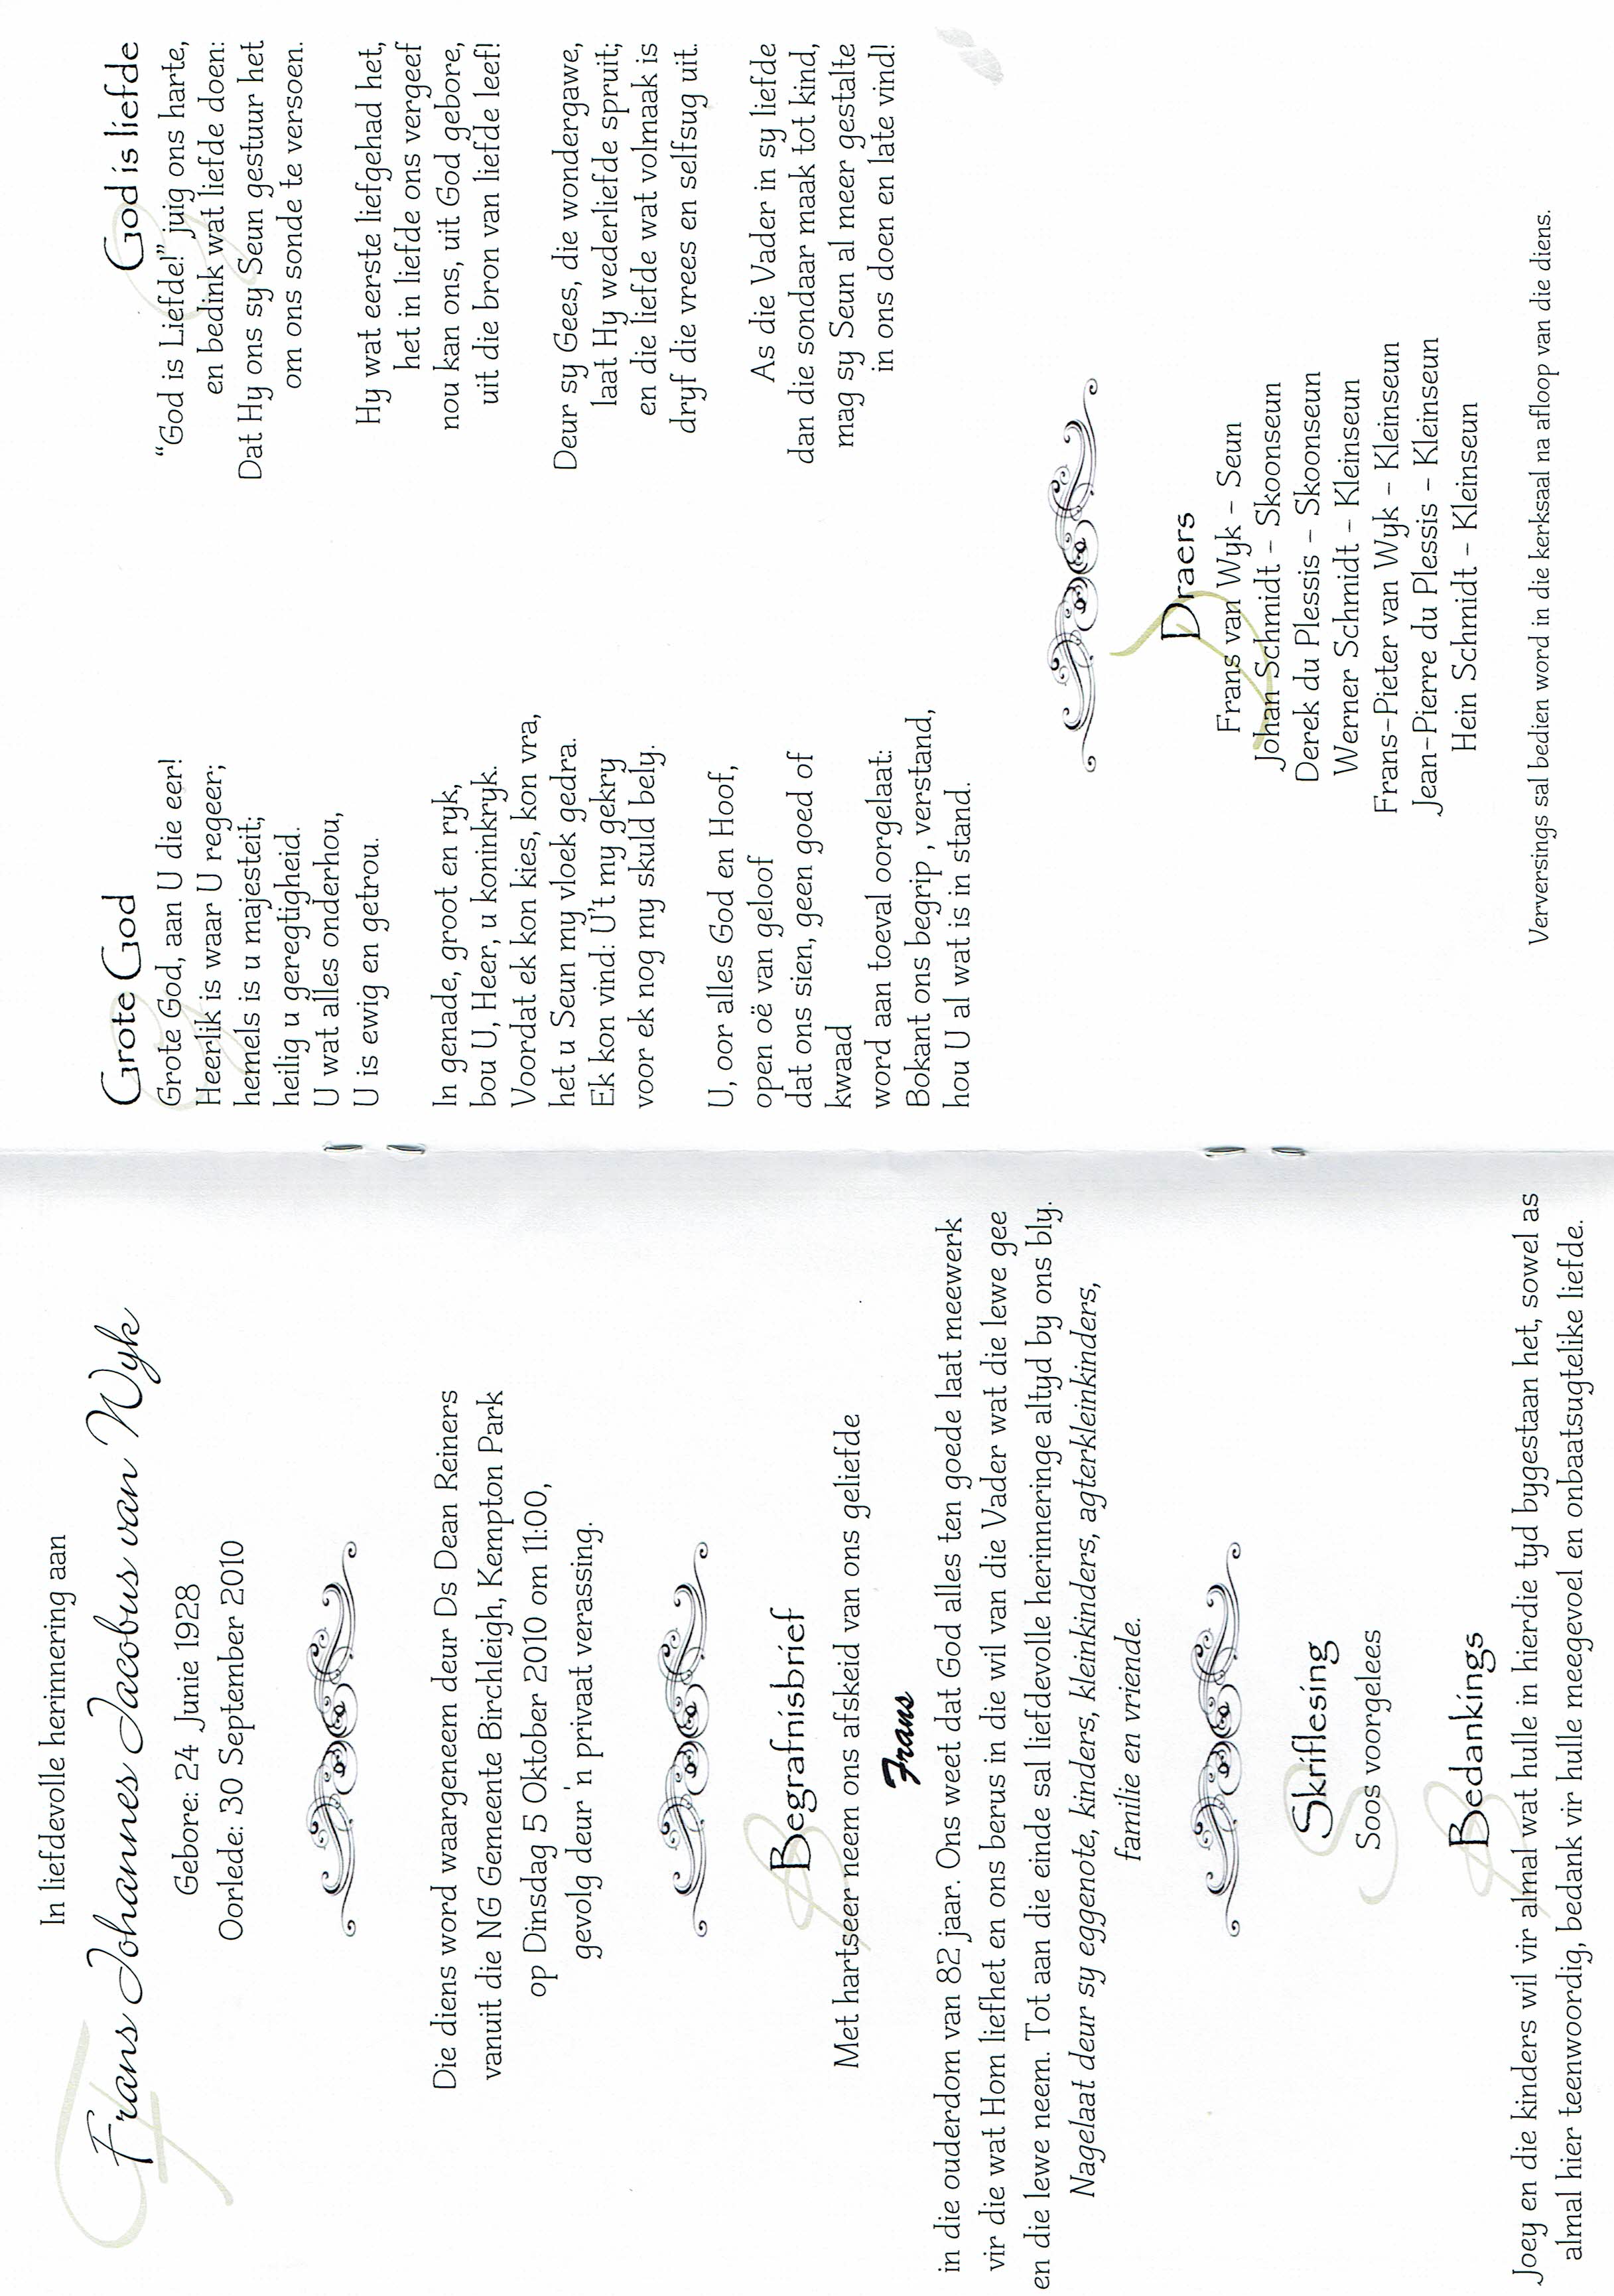 In liefdevolle herinnering aan
Frans Johannes Jacobus van Wyk
Gebore: 24 Junie 1928
Oorlede: 30 September 2010
Die diens word waargeneem deur Ds Dean Reiners
vanuit die NG Gemeente Birchleigh, Kempton Park
op Dinsdag 5 Oktober 2010 om 11:00,
gevolg deur 'n privaat verassing.
Begrafnisbrief
Met hartseer neem ons afskeid van ons geliefde
Frans
in die ouderdom van 82 jaar. Ons weet dat God alles ten goede laat meewerk
vir die wat Hom liefhet en ons berus in die wil van die Vader wat die lewe gee
en die lewe neem. Tot aan die einde sal liefdevolle herinneringe altyd by ons bly.
Nagelaat deur sy eggenote, kinders, kleinkinders, agterkleinkinders,
familie en vriende.
Skriflesing
Soos voorgelees
Bedankings
Joey en die kinders wil vir almal wat hulle in hierdie tyd bygestaan het, sowel as
almal hier teenwoordig, bedank vir hulle meegevoel en onbaatsugtelike liefde.
Grote God
Grote God, aan U die eer!
Heerlik is waar U regeer;
hemels is u majesteit;
heilig u geregtigheid.
U wat alles onderhou,
U is ewig en getrou.
In genade, groot en ryk,
bou U, Heer, u koninkryk.
Voordat ek kon kies, kon vra,
het u Seun my vloek gedra.
Ek kon vind: U't my gekry
voor ek nog my skuld bely.
U, oor alles God en Hoof,
open oë van geloof
dat ons sien, geen goed of
kwaad
word aan toeval oorgelaat:
Bokant ons begrip , verstand,
hou U al wat is in stand.
God is liefde
“God is Liefde!” juig ons harte,
en bedink wat liefde doen:
Dat Hy ons sy Seun gestuur het
om ons sonde te versoen.
Hy wat eerste liefgehad het,
het in liefde ons vergeef
nou kan ons, uit God gebore,
uit die bron van liefde leef!
Deur sy Gees, die wondergawe,
laat Hy wederliefde spruit;
en die liefde wat volmaak is
dryf die vrees en selfsug uit.
As die Vader in sy liefde
dan die sondaar maak tot kind,
mag sy Seun al meer gestalte
in ons doen en late vind!
Draers
Frans van Wyk – Seun
Johan Schmidt – Skoonseun
Derek du Plessis – Skoonseun
Werner Schmidt – Kleinseun
Frans-Pieter van Wyk – Kleinseun
Jean-Pierre du Plessis – Kleinseun
Hein Schmidt – Kleinseun
Verversings sal bedien word in die kerksaal na afloop van die diens.